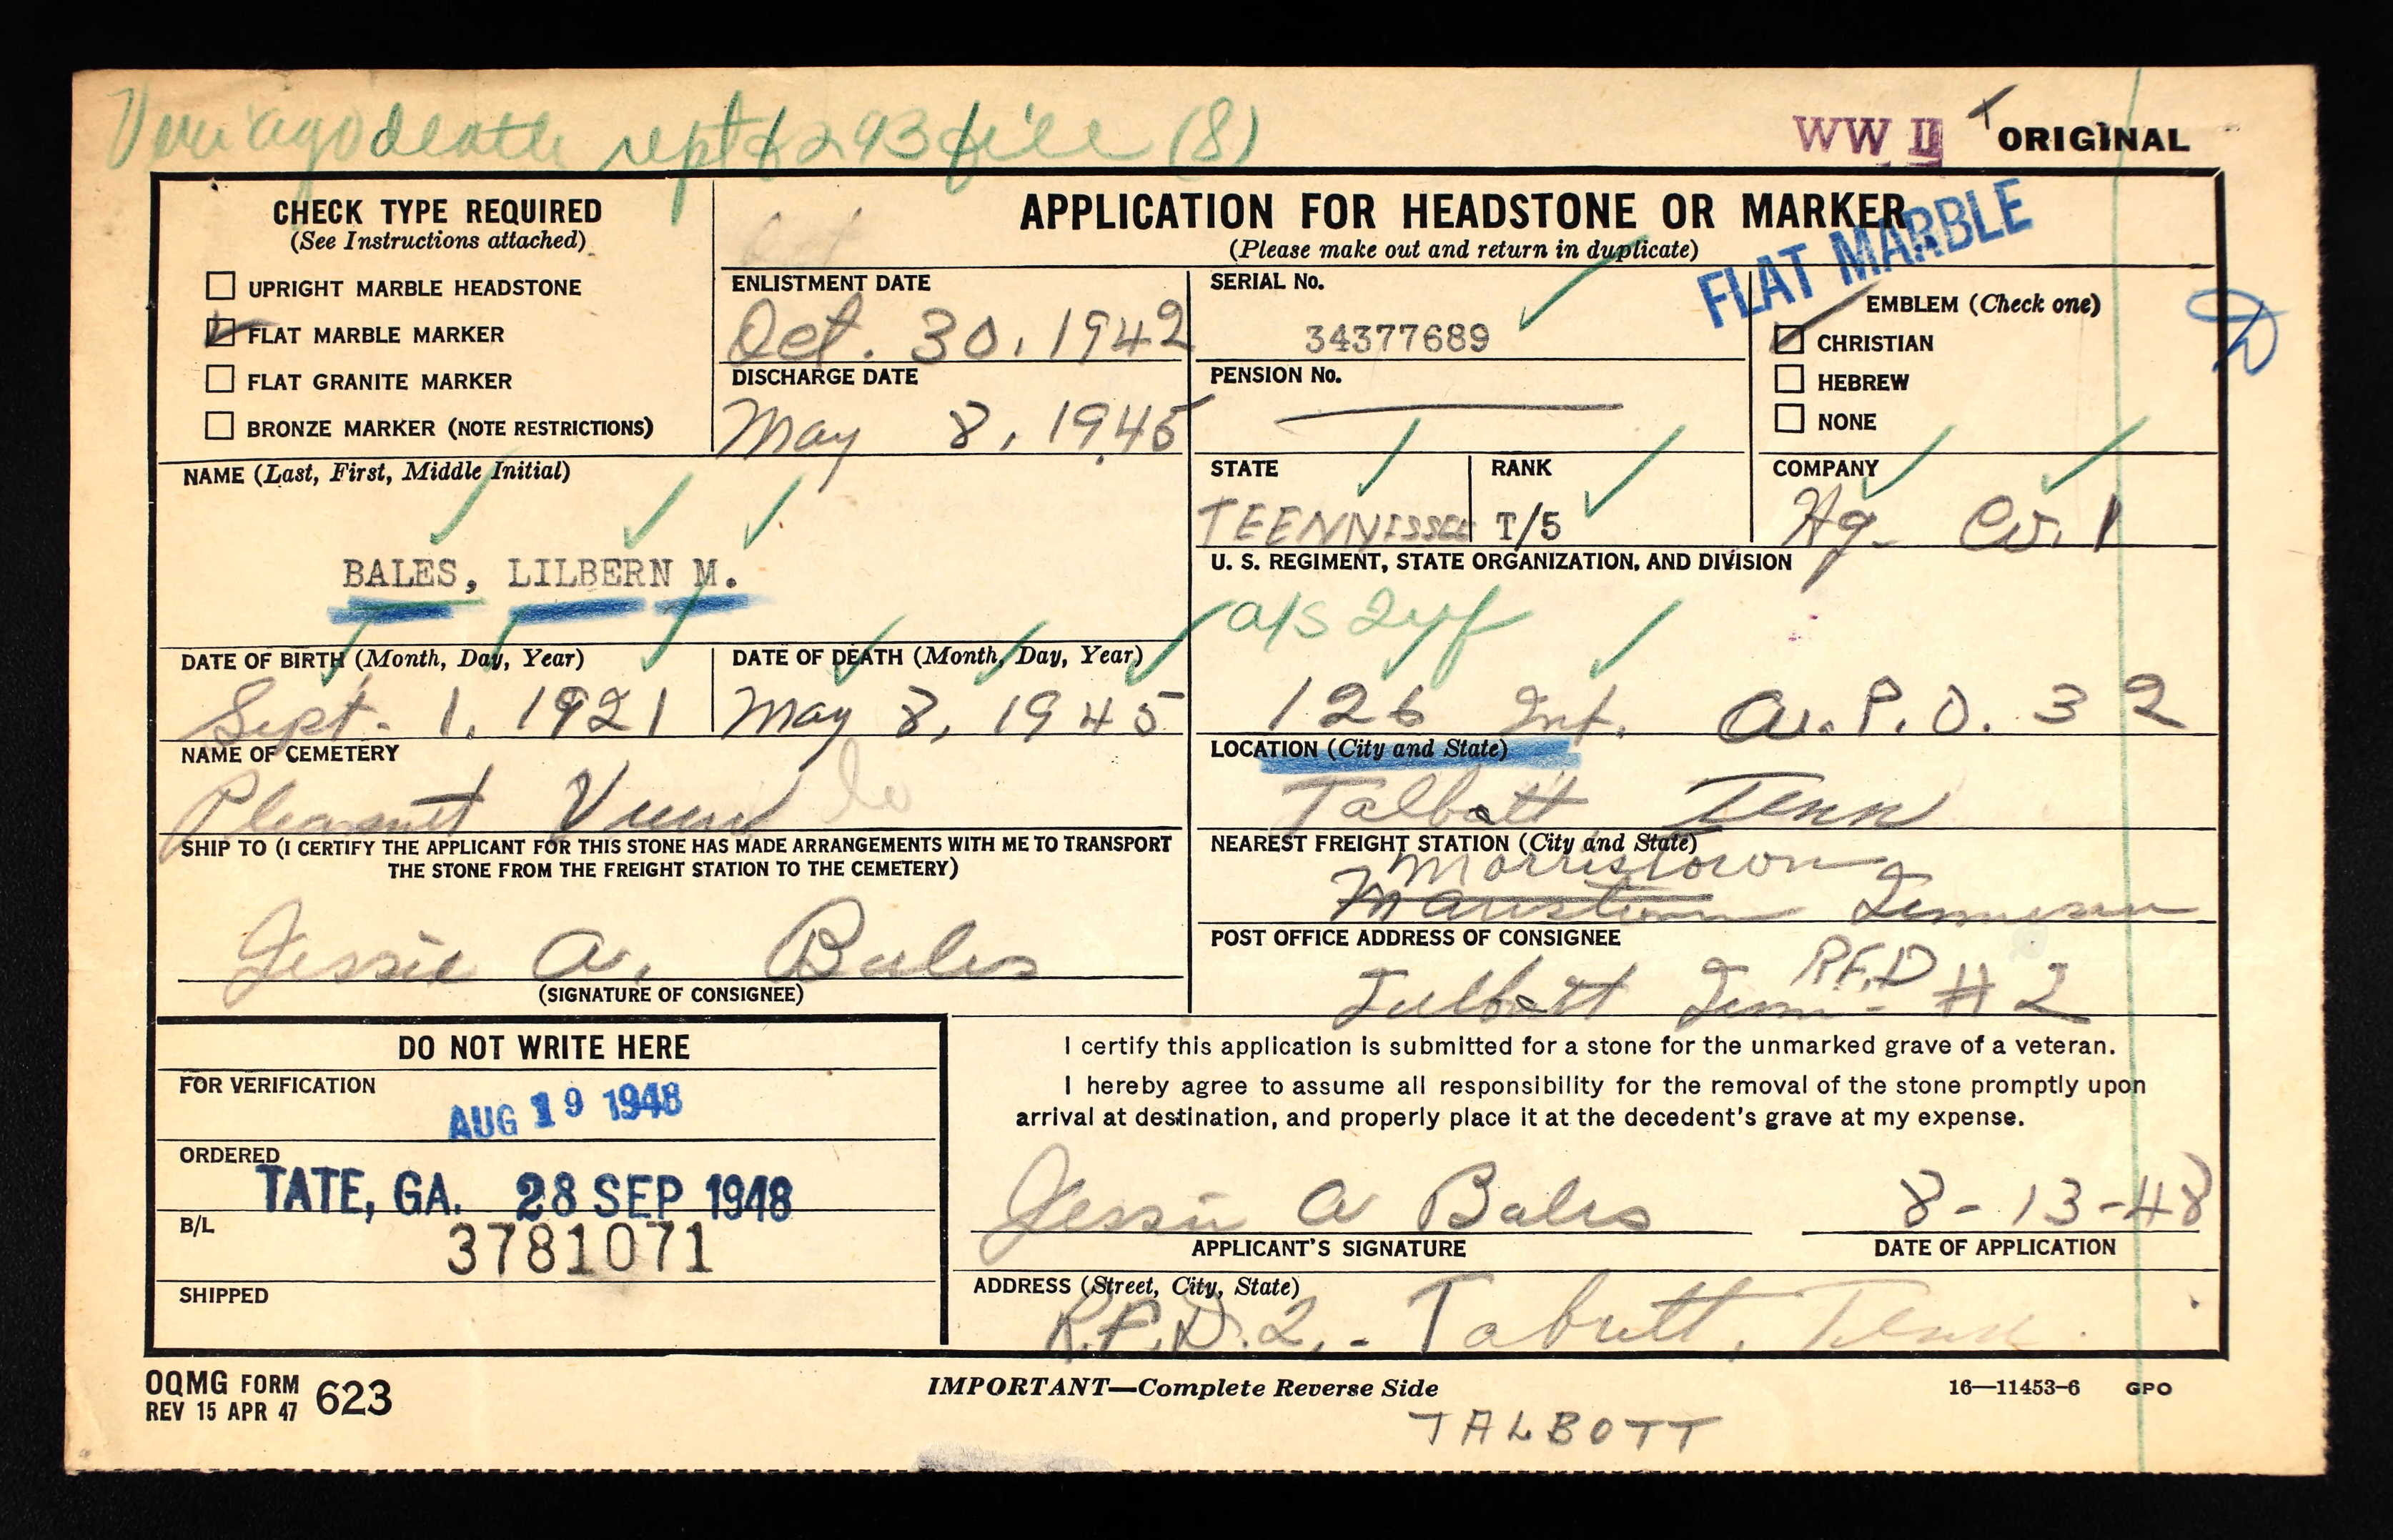 death rept 293 file (8)
WW II ORIGINAL
CHECK TYPE REQUIRED
(See Instructions attached)
UPRIGHT MARBLE HEADSTONE
FLAT MARBLE MARKER
FLAT GRANITE MARKER
BRONZE MARKER (NOTE RESTRICTIONS)
APPLICATION FOR HEADSTONE OR MARKER
(Please make out and return in duplicate)
FLAT MARBLE
ENLISTMENT DATE
Oct. 30, 1942
DISCHARGE DATE
May 8, 1945
SERIAL No.
34377689
PENSION No.
EMBLEM (Check one)
CHRISTIAN
HEBREW
NONE
NAME (Last, First, Middle Initial)
BALES, LILBERN M.
STATE
TEENNISSEE
RANK
T/5
COMPANY
Hq. Co. 1
U. S. REGIMENT, STATE ORGANIZATION, AND DIVISION
a/s Inf
126 Inf. A.P.O. 32
DATE OF BIRTH (Month, Day, Year)
Sept. 1, 1921
DATE OF DEATH (Month, Day, Year)
May 8, 1945
NAME OF CEMETERY
Pleasant View
LOCATION (City and State)
Talbott Tenn
SHIP TO (I CERTIFY THE APPLICANT FOR THIS STONE HAS MADE ARRANGEMENTS WITH ME TO TRANSPORT
THE STONE FROM THE FREIGHT STATION TO THE CEMETERY)
Jessie A. Bales
(SIGNATURE OF CONSIGNEE)
NEAREST FREIGHT STATION (City and State)
Morristown
Tennessee
POST OFFICE ADDRESS OF CONSIGNEE
Talbott Tenn. R.F.D # 2
DO NOT WRITE HERE
FOR VERIFICATION
AUG 19 1948
ORDERED
TATE, GA. 28 SEP 1948
B/L
3781071
SHIPPED
I certify this application is submitted for a stone for the unmarked grave of a veteran.
I hereby agree to assume all responsibility for the removal of the stone promptly upon
arrival at destination, and properly place it at the decedent's grave at my expense.
Jessie A Bales
APPLICANT'S SIGNATURE
8-13-48
DATE OF APPLICATION
ADDRESS (Street, City, State)
R.F.D. 2,- Tabott, Tenn.
OQMG FORM 623
REV 15 APR 47
IMPORTANT—Complete Reverse Side
16—11453-6 GPO
TALBOTT